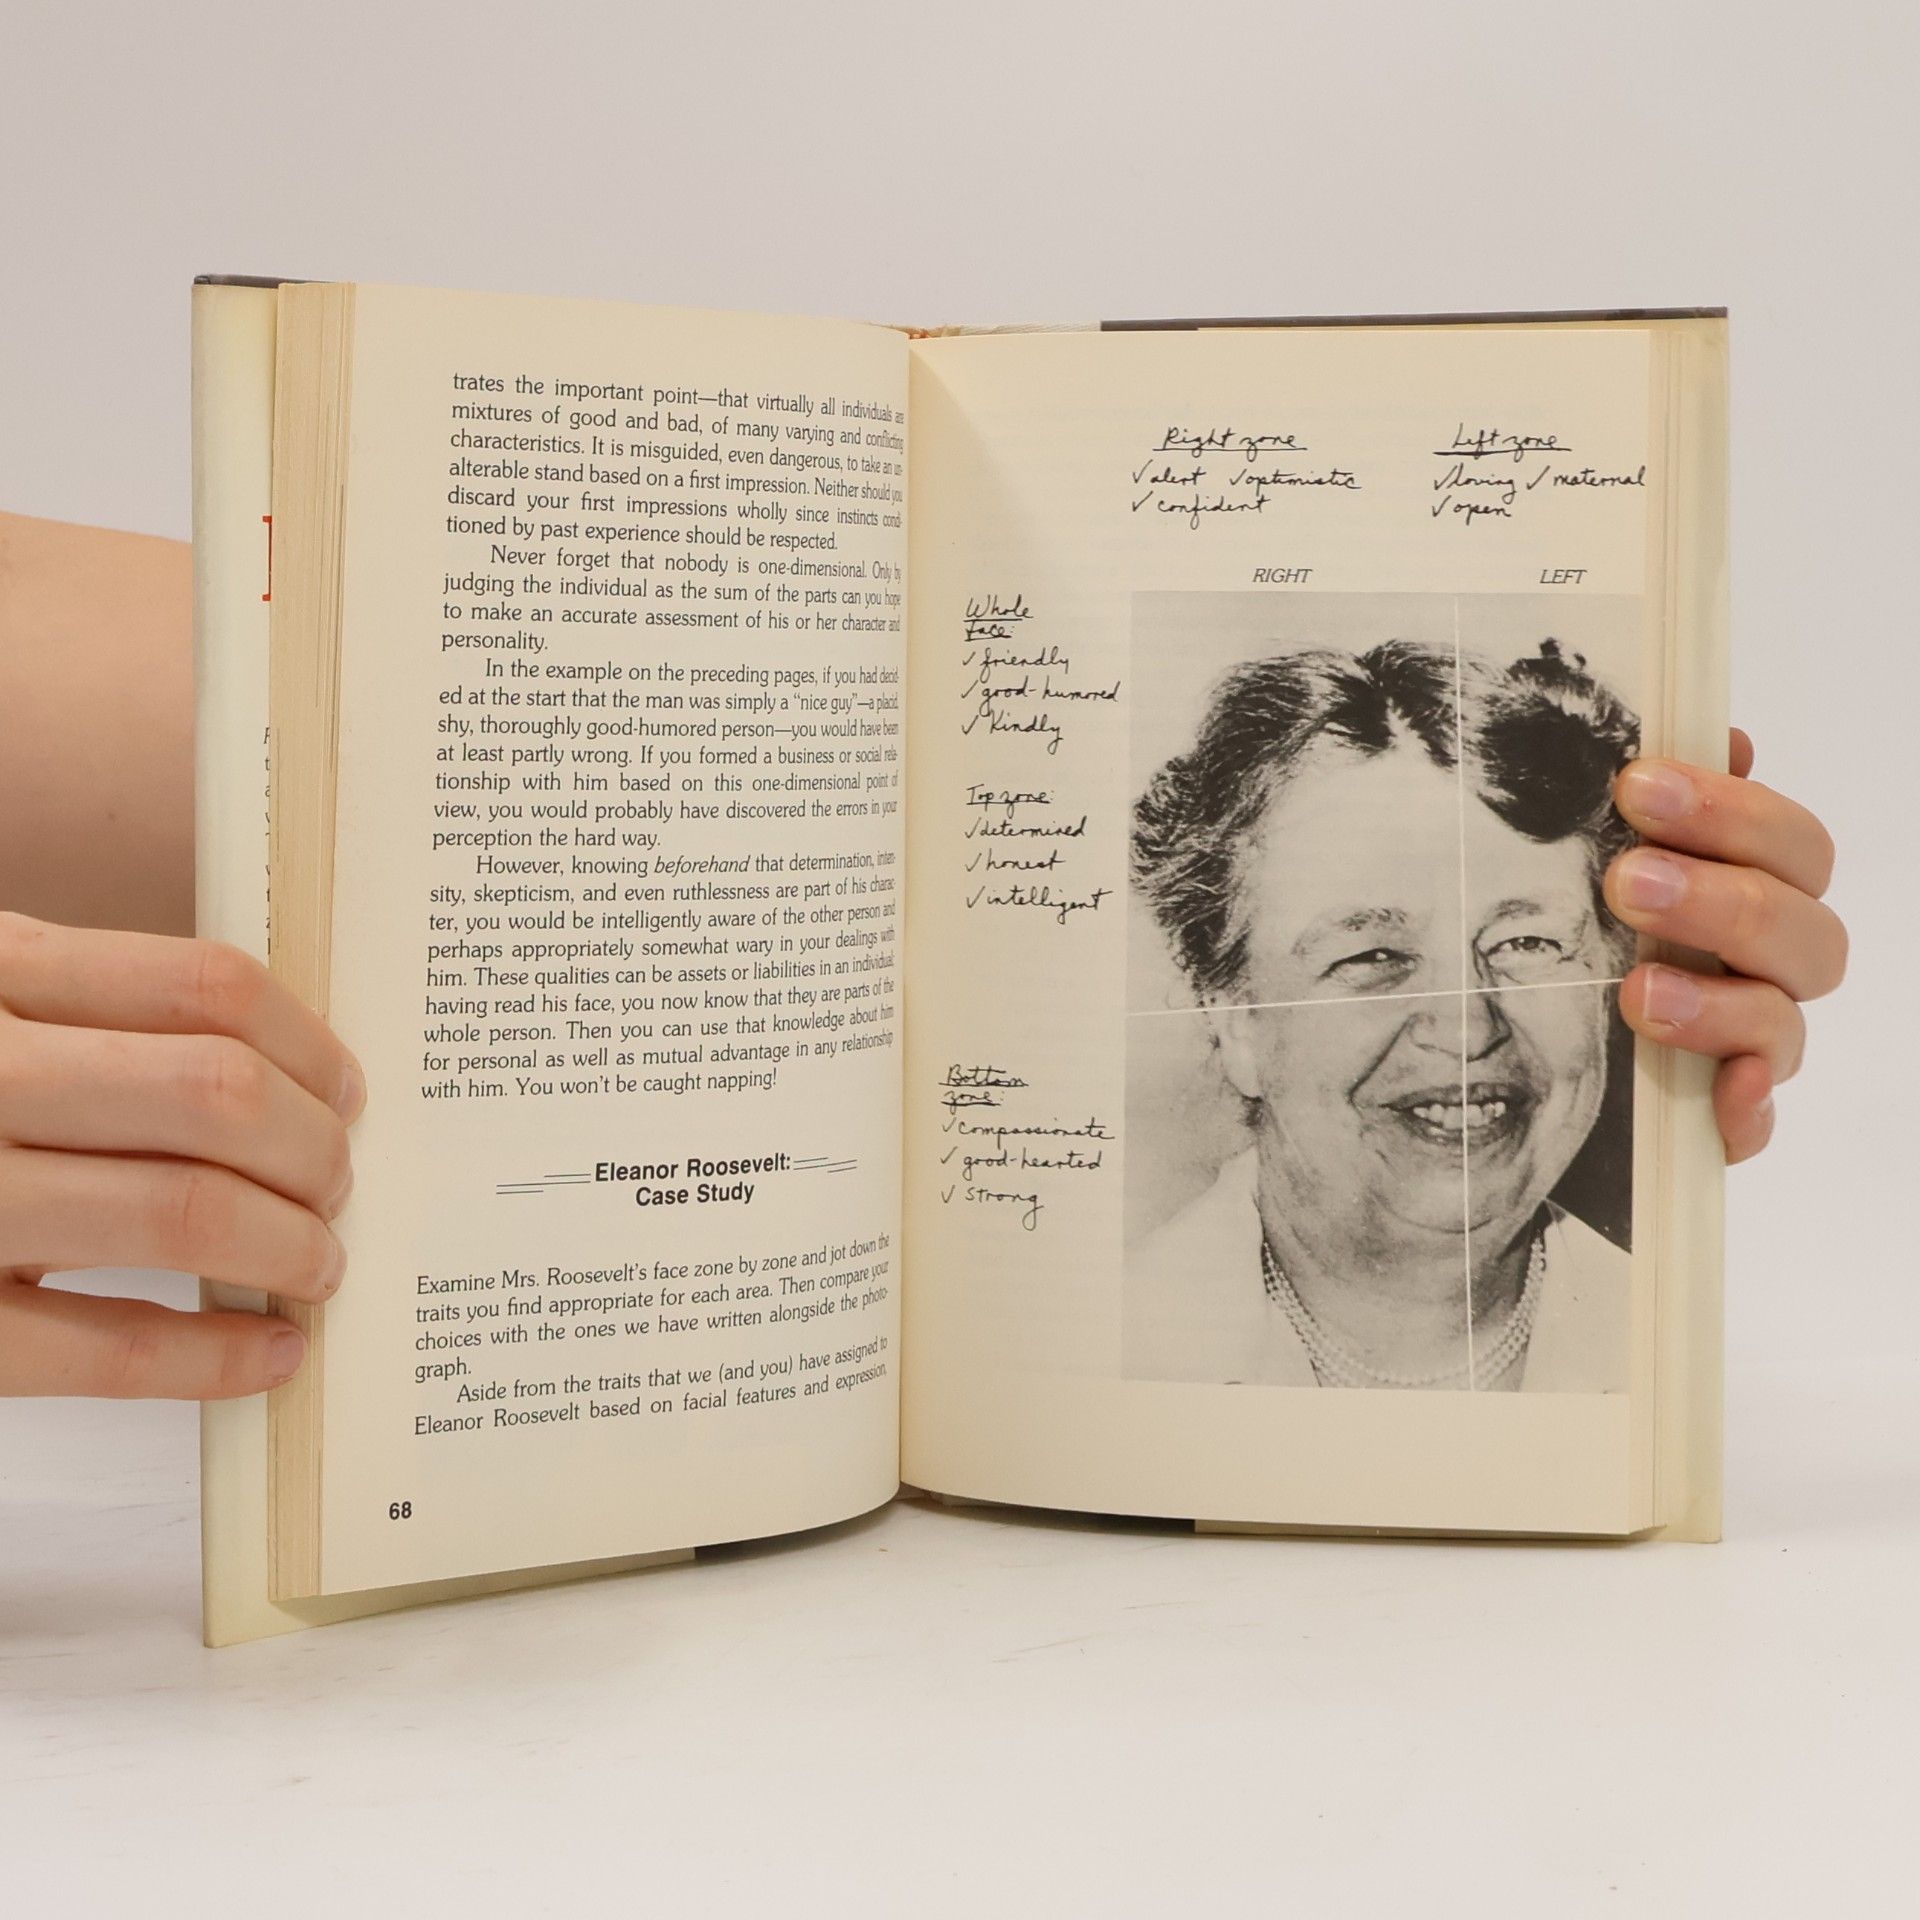 trates the important point—that virtually all individuals are
mixtures of good and bad, of many varying and conflicting
characteristics. It is misguided, even dangerous, to take an un-
alterable stand based on a first impression. Neither should you
discard your first impressions wholly since instincts condi-
tioned by past experience should be respected.
Never forget that nobody is one-dimensional. Only by
judging the individual as the sum of the parts can you hope
to make an accurate assessment of his or her character and
personality.
In the example on the preceding pages, if you had decid-
ed at the start that the man was simply a “nice guy”—a placid,
shy, thoroughly good-humored person—you would have been
at least partly wrong. If you formed a business or social rela-
tionship with him based on this one-dimensional point of
view, you would probably have discovered the errors in your
perception the hard way.
However, knowing beforehand that determination, inten-
sity, skepticism, and even ruthlessness are part of his charac-
ter, you would be intelligently aware of the other person and
perhaps appropriately somewhat wary in your dealings with
him. These qualities can be assets or liabilities in an individual:
having read his face, you now know that they are parts of the
whole person. Then you can use that knowledge about him
for personal as well as mutual advantage in any relationship
with him. You won't be caught napping!
Eleanor Roosevelt:
Case Study
Examine Mrs. Roosevelt's face zone by zone and jot down the
traits you find appropriate for each area. Then compare your
choices with the ones we have written alongside the photo-
graph.
Aside from the traits that we (and you) have assigned to
Eleanor Roosevelt based on facial features and expression,
68
Right zone
✓alert ✓optimistic
✓confident
Left zone
✓loving ✓maternal
✓open
RIGHT LEFT
Whole
face:
✓friendly
✓good-humored
✓Kindly
Top zone:
✓determined
✓honest
✓intelligent
Bottom
zone:
✓compassionate
✓good-hearted
✓strong